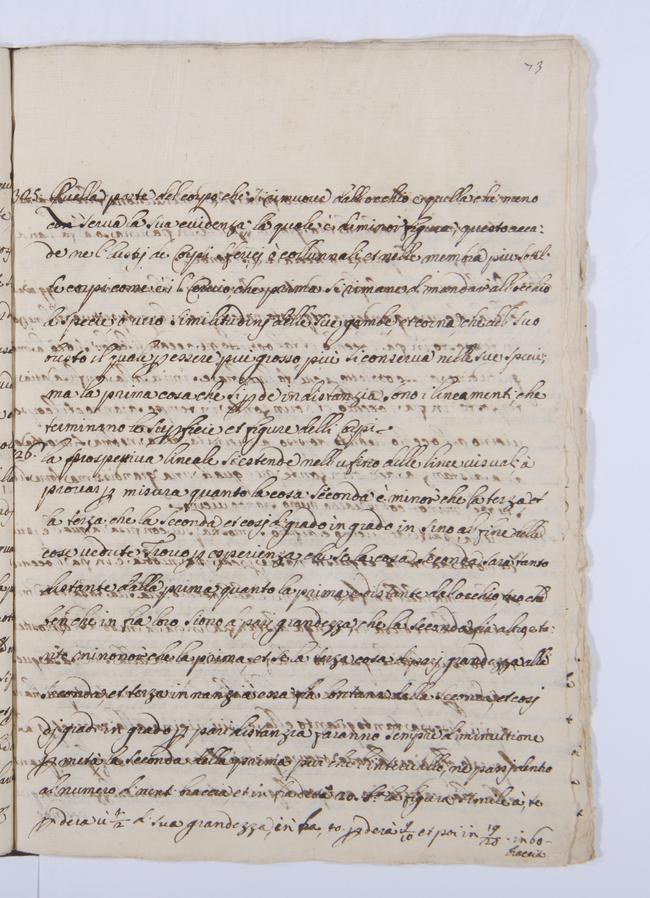 73
325. Quella parte del corpo che si rimuove dall occhio e quella che meno
conserva la sua evidenza la quale è di minor figura, questo acca-
de ne lustri de Corpi sferici o collunnali et nelle membra piu sottil
de corpi come è il Cervio che prima si rimane di mandar all occhio
le spezie o vero similitudini delle sue gambe et corna che del suo
busto il quale p essere piu grosso piu si conserva nelle sue spezie,
ma la prima cosa che si pde in distanzia sono i lineamenti che
terminano le supficie et figure delli Corpi.
26. la prospettiva lineale si estende nell ufitio delle linee visuali à
provar p misura quanto la cosa seconda e minor che la terza et
la terza che la seconda et così di grado in grado in sino al fine delle
cose vedute trovo p esperienza che se la cosa seconda sarà tanto
distante dalla prima quanto la prima e distante dal occhio
ben che in fra loro siono di pari grandezza, che la seconda fia
minore che la prima et se la terza cosa di pari grandezza alla
seconda, et terza innanzi à essa fia lontana dalla seconda et così
di grado in grado p pari distanzia faranno sempre diminuitione
p metà la seconda dalla prima pur che l intervallo
al numero di braccia et in fra 20 b.a la figura simile à te
pderà i di sua grandezza, in fra, to. pderà 9/10 et poi in 19/20 in 60-
braccia